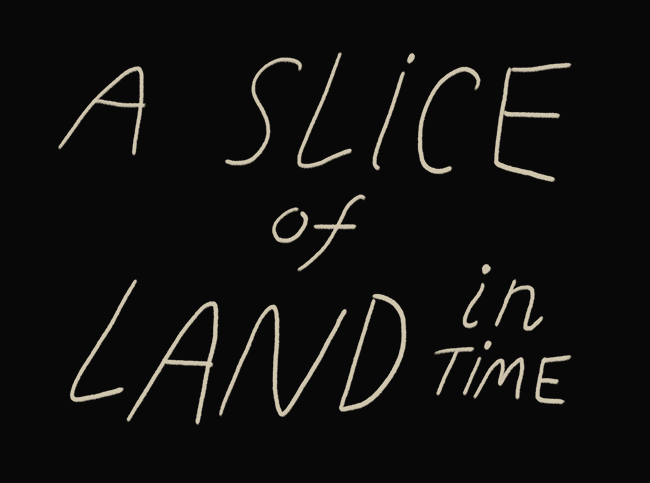 A SLiCE
of
LAND in
TiME